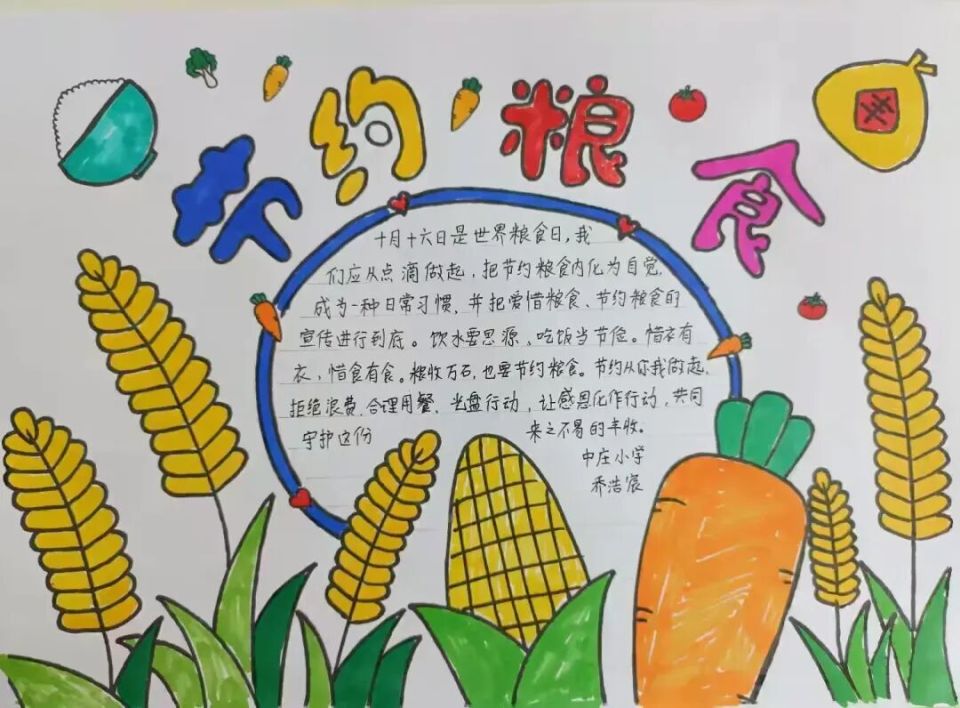 节约粮食
十月十六日是世界粮食日,我
们应从点滴做起,把节约粮食内化为自觉,
成为一种日常习惯,并把爱惜粮食、节约粮食的
宣传进行到底。饮水要思源,吃饭当节俭。惜衣有
衣,惜食有食。粮收万石,也要节约粮食。节约从你我做起,
拒绝浪费,合理用餐,光盘行动,让感恩化作行动,共同
守护这份 来之不易的丰收。
中庄小学
乔浩宸